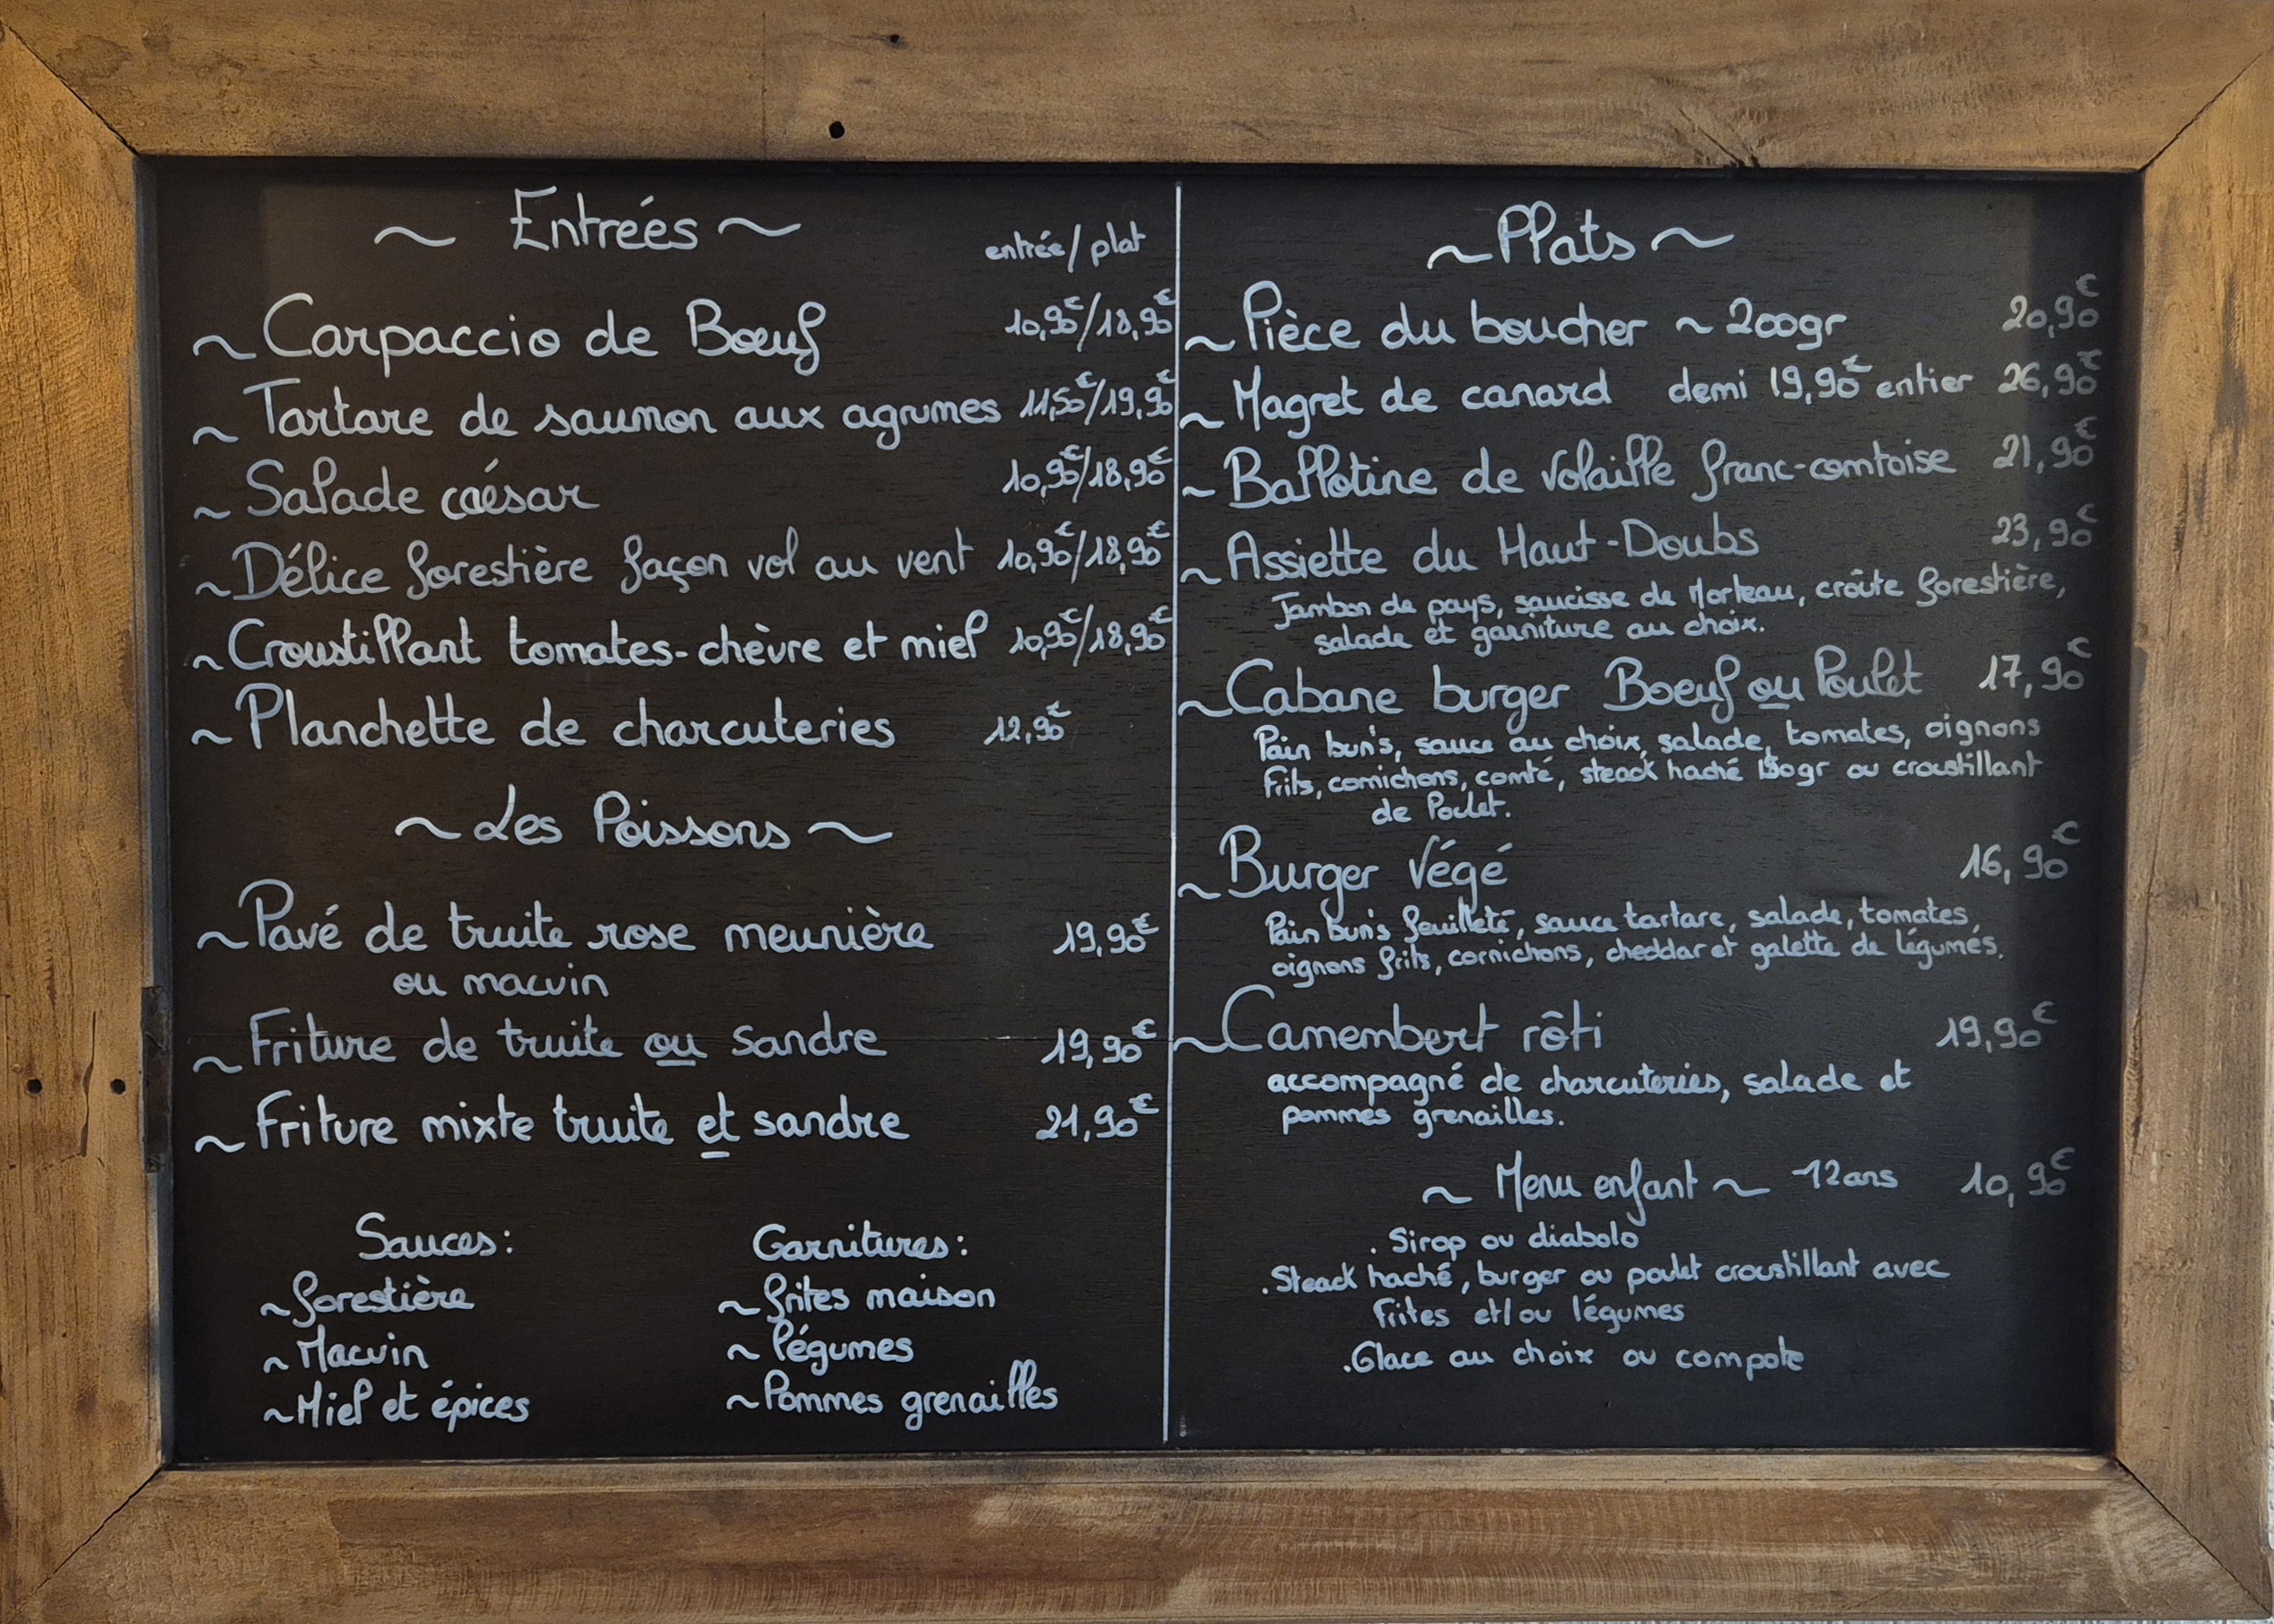 ~ Entreés ~
entrée/plat
~ Carpaccio de Bœuf 10,90€/18,90€
~ Tartare de saumon aux agrumes 11,50€/19,90€
~ Salade caésar 10,90€/18,90€
~ Délice forestière façon vol au vent 10,90€/18,90€
~ Croustillant tomates-chèvre et miel 10,90€/18,90€
~ Planchette de charcuteries 12,90€
~ Les Poissons ~
~ Pavé de truite rose meunière 19,90€
ou macvin
~ Friture de truite ou sandre 19,90€
~ Friture mixte truite et sandre 21,90€
Sauces:
~ forestière
~ Macvin
~ Miel et épices
Garnitures:
~ frites maison
~ légumes
~ Pommes grenailles
~ Plats ~
~ Pièce du boucher ~ 200gr 20,90€
~ Magret de canard demi 19,90€ entier 26,90€
~ Ballotine de volaille franc-comtoise 21,90€
~ Assiette du Haut-Doubs 23,90€
Jambon de pays, saucisse de Morteau, croûte forestière,
salade et garniture au choix.
~ Cabane burger Boeuf ou Poulet 17,90€
Pain bun's, sauce au choix, salade, tomates, oignons
frits, cornichons, comté, steack haché 150gr ou croustillant
de Poulet.
~ Burger Végé 16,90€
Pain bun's feuilleté, sauce tartare, salade, tomates,
oignons frits, cornichons, cheddar et galette de légumés.
~ Camembert rôti 19,90€
accompagné de charcuteries, salade et
pommes grenailles.
~ Menu enfant ~ -12ans 10,90€
. Sirop ou diabolo
. Steack haché, burger ou poulet croustillant avec
Frites et/ou légumes
. Glace au choix ou compote